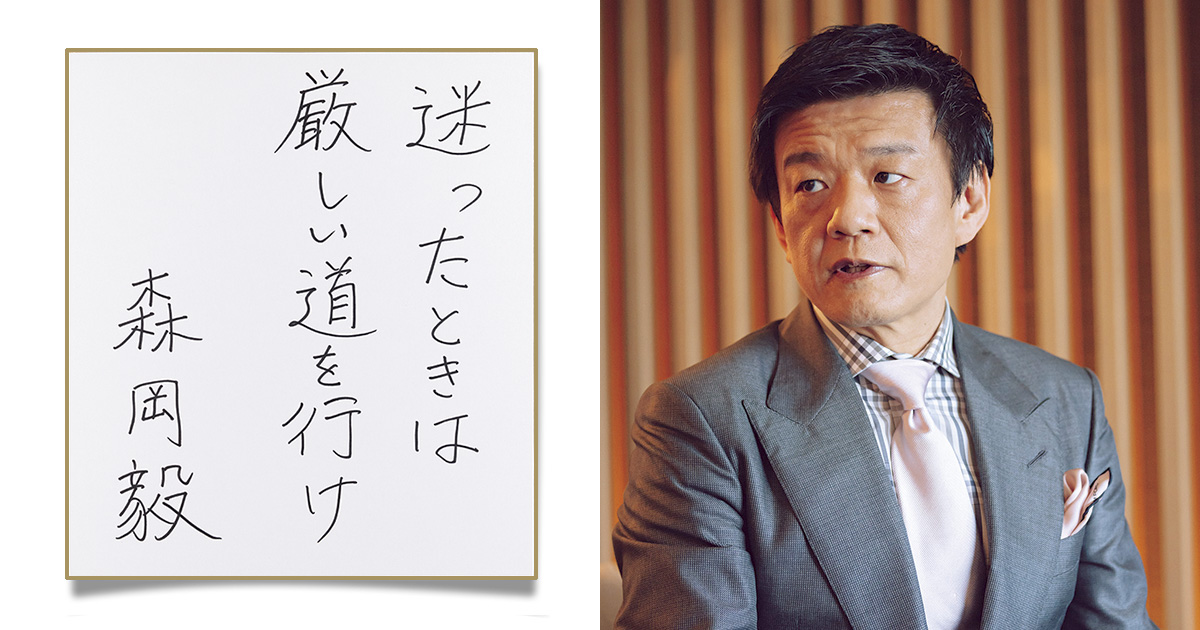 迷ったときは
厳しい道を行け
森岡毅